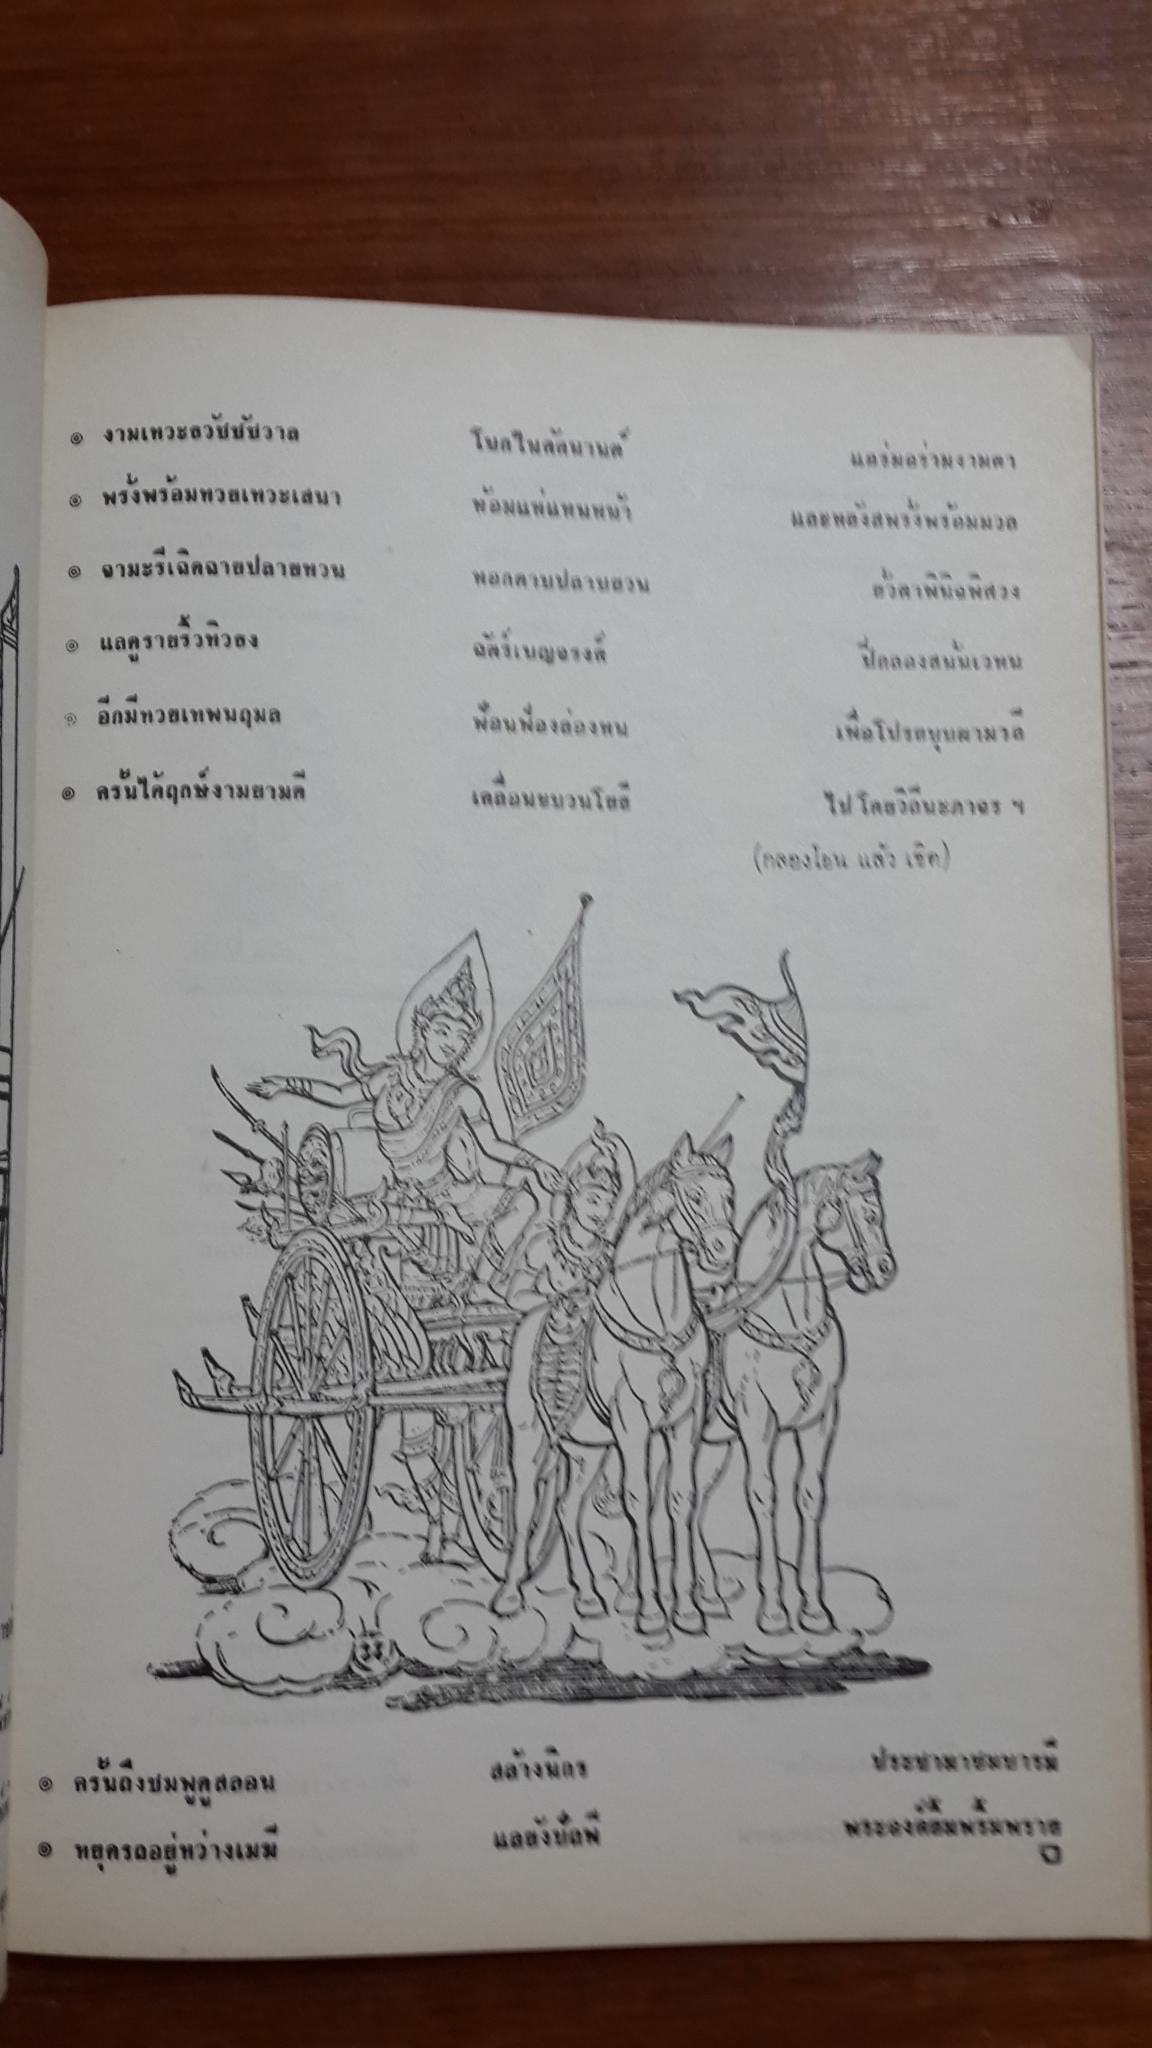 ๏ งามเทวะธวัชชัชวาล โบกในคัคนานต์ แลร่มอร่ามงามตา
๏ พรั่งพร้อมทวยเทวะเสนา ห้อมแห่แหนหน้า และหลังสพรั่งพร้อมมวล
๏ จามะรีเฉิดฉายปลายทวน หอกดาบปลาบยวน ยั่วตาพินิจพิศวง
๏ แลดูรายริ้วทิวธง ฉัตร์เบญจรงค์ ปี่กลองสนั่นเวหน
๏ อีกมีทวยเทพนฤมล ฟ้อนฟ่องล่องหน เพื่อโปรยบุบผามาลี
๏ ครั้นได้ฤกษ์งามยามดี เคลื่อนขบวนโยธี ไปโดยวิถีนะภาจร ฯ
(กลองโยน แล้ว เชิด)
๏ ครั้นถึงชมพูดูสลอน สล้างนิกร ประชามาชมบารมี
๏ หยุดรถอยู่หว่างเมฆี แลยังปัถพี พระองค์ยิ้มพริ้มพราย
๘